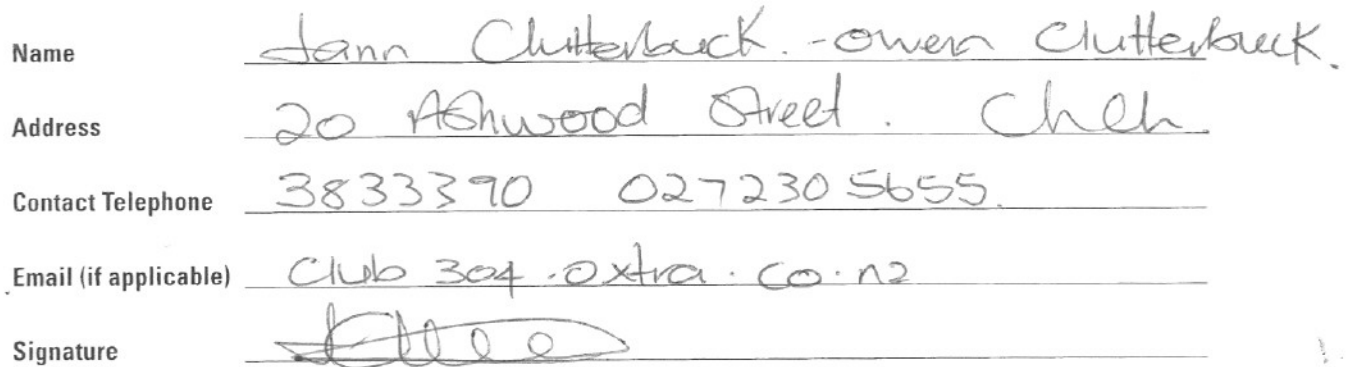 Name Jann Clutterbuck. - Owen Clutterbuck.
Address 20 Ashwood Street. Chch.
Contact Telephone 3833390 0272305655.
Email (if applicable) Club 304.oxtra.co.nz
Signature